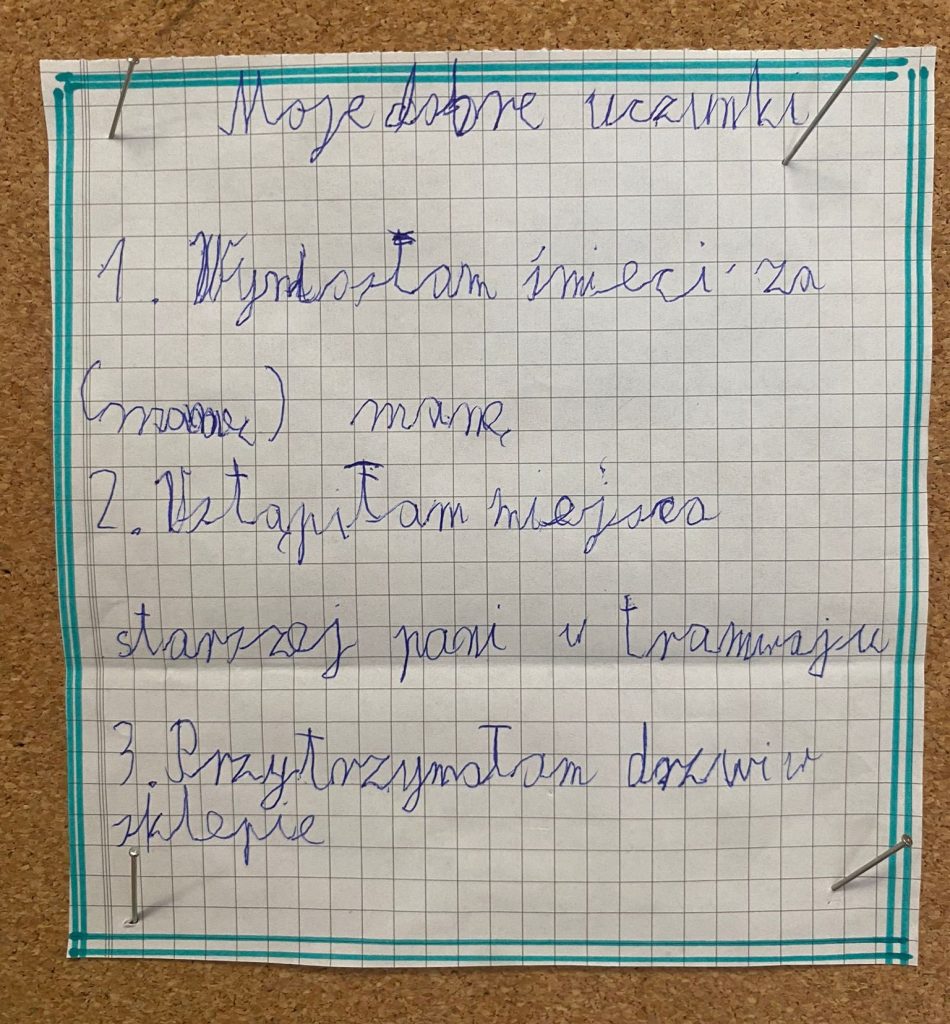 Moje dobre uczynki
1. Wyniosłam śmieci za
(mamę) mamę
2. Ustąpiłam miejsca
starszej pani w tramwaju
3. Przytrzymałam drzwi w
sklepie